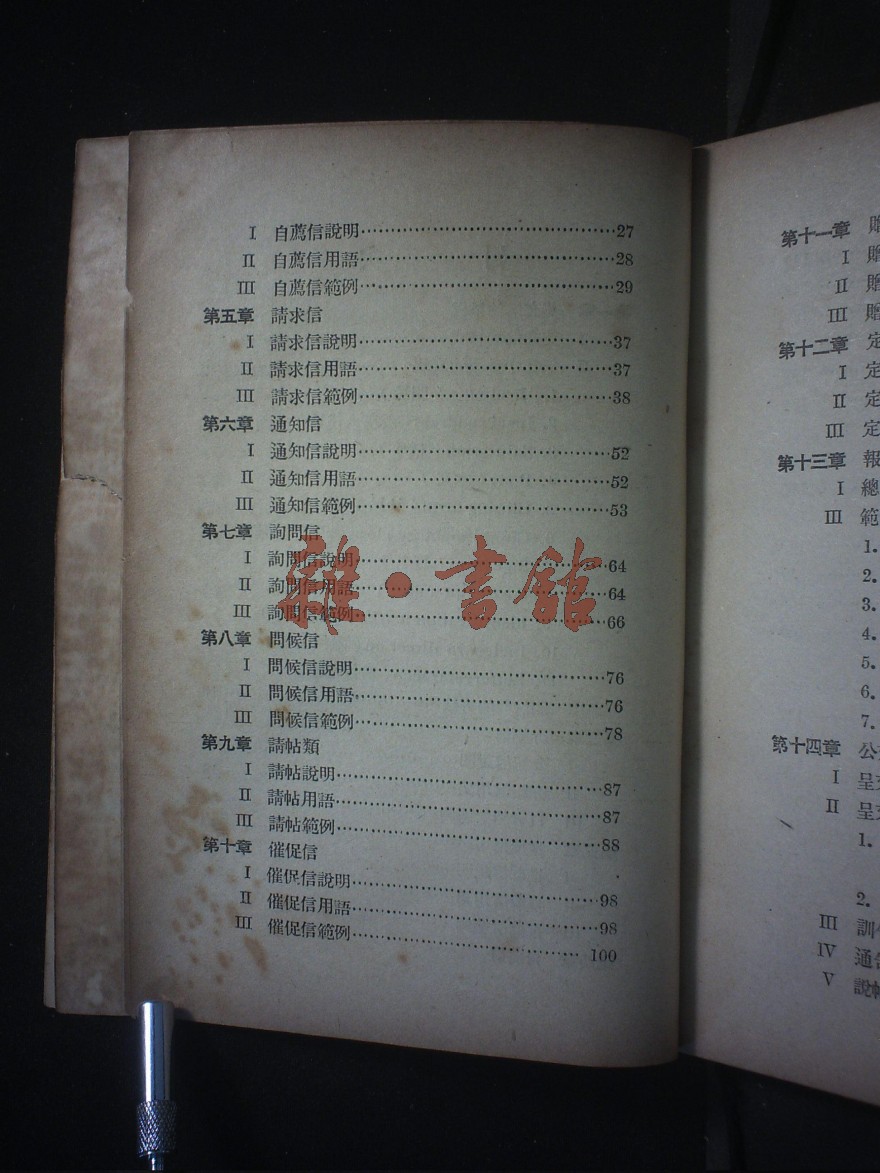 I 自薦信說明 27
II 自薦信用語 28
III 自薦信範例 29
第五章 請求信
I 請求信說明 37
II 請求信用語 37
III 請求信範例 38
第六章 通知信
I 通知信說明 52
II 通知信用語 52
III 通知信範例 53
第七章 詢問信
I 詢問信說明 64
II 詢問信用語 64
III 詢問信範例 66
第八章 問候信
I 問候信說明 76
II 問候信用語 76
III 問候信範例 78
第九章 請帖類
I 請帖說明 87
II 請帖用語 87
III 請帖範例 88
第十章 催促信
I 催促信說明 98
II 催促信用語 98
III 催促信範例 100
雜·書館
第十一章 贈
I 贈
II 贈
III 贈
第十二章 定
I 定
II 定
III 定
第十三章 報
I 總
III 範
1.
2.
3.
4.
5.
6.
7.
第十四章 公
I 呈
II 呈
1.
2.
III 訓
IV 通告
V 說帖